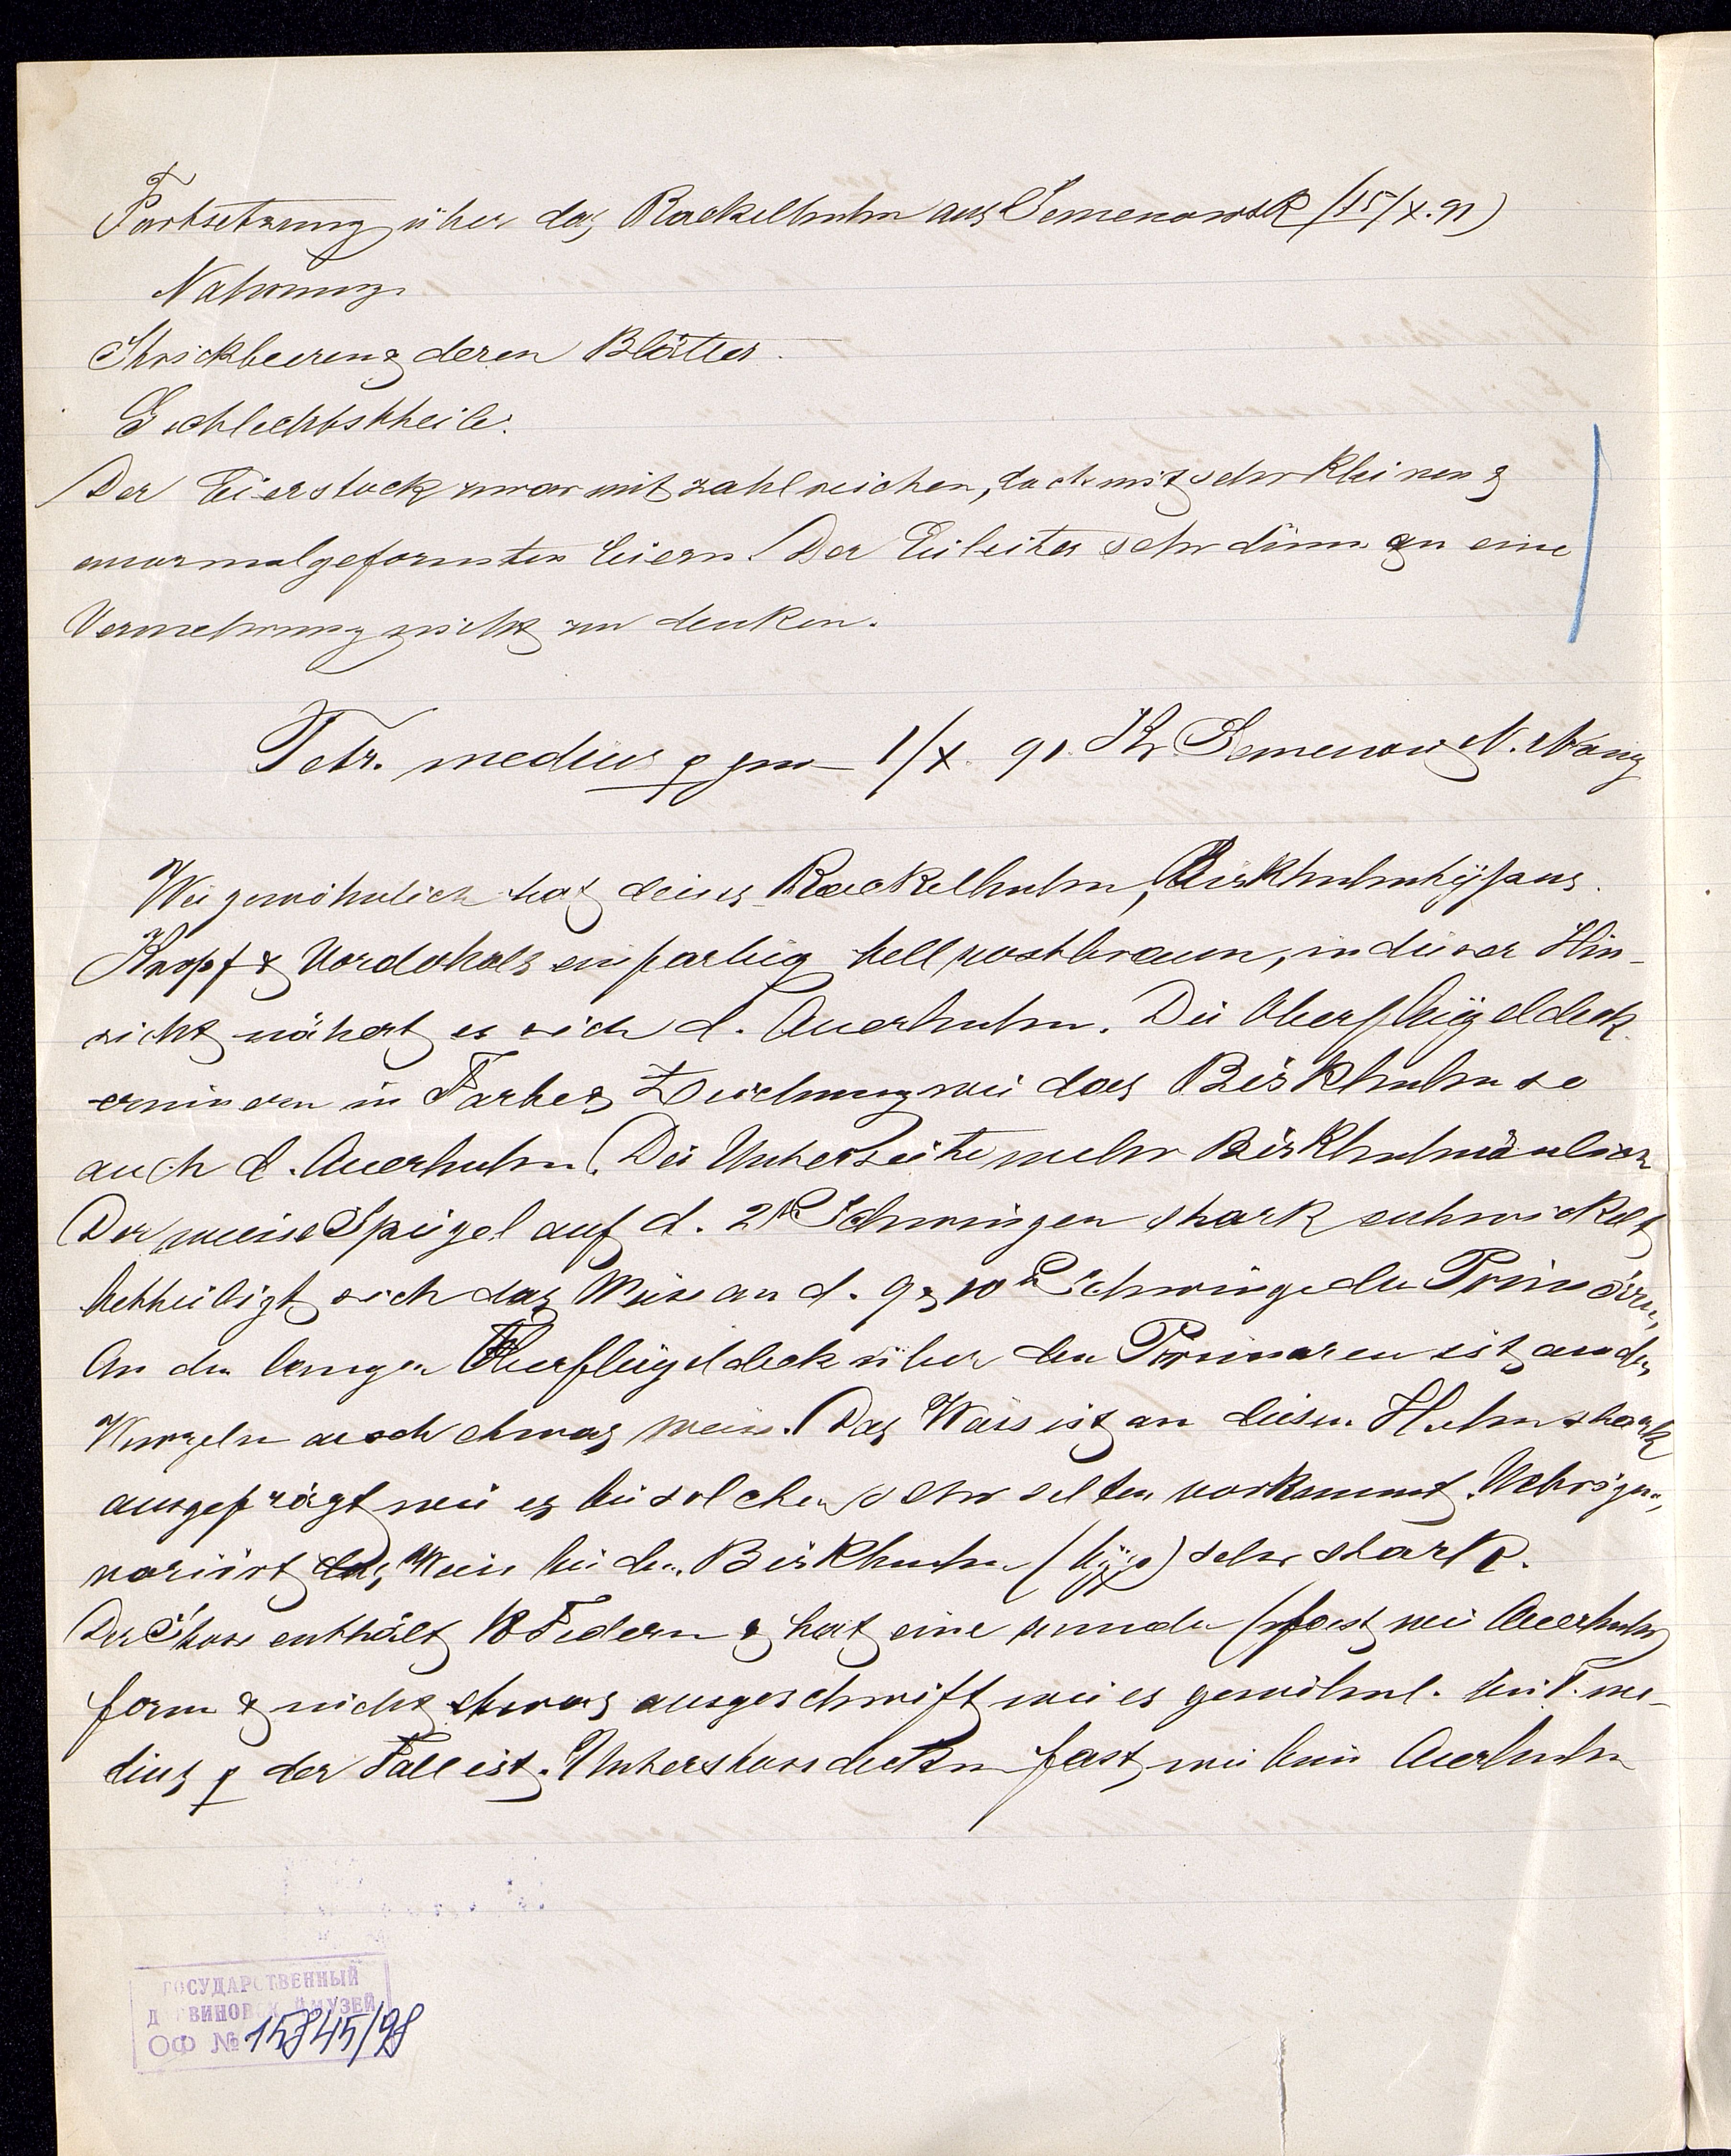 Fortsetzung über das Rackelhuhn aus Semenowsk (15/X. 91)
Nahrung.
Strickbeeren & deren Blätter.
Geschlechtstheile.
Der Eierstock zwar mit zahlreichen, doch mit sehr kleinen &
anormalgeformten Eiern. Der Eileiter sehr dünn an eine
Vermehrung nicht zu denken.
Tetr. medius ♀ 1/X. 91. Kr Semenow N. Nowg
Wie gewöhnlich hat dieses Rackelhuhn, Birkhuhntypus.
Kropf & Vorderhals einfarbig hell rostbraun, in dieser Hin-
sicht nähert es sich d. Auerhuhn. Die Oberflügeldeck.
erinnern in Farbe & Zeichnung wie das Birkhuhn so
auch d. Auerhuhn. Die Unterseite mehr Birkhuhnänlich
Der weisse Spiegel auf d. 2ten Schwingen stark entwickelt
betheiligt sich das Weise an d. 9 & 10ten Schwinge der Primären,
An den langen Oberflügeldeck über den Primaren ist an den
Wurzeln auch etwas weiss. Das Weiss ist an diesem Huhn stark
ausgeprägt wie es bei solchen sehr selten vorkommt. Uebrigens,
variirt das Weiss bei den Birkhuhn (typ) sehr stark.
Der Stoss enthält 18 Federn & hat eine runde (fast wie Auerhuhn
form & nicht etwas ausgeschweift wie es gewöhnl. bei T. me-
dius ♀ der Fall ist. Unterstossdecken fast wie beim Auerhuhn
ГОСУДАРСТВЕННЫЙ
ДАРВИНОВСКИЙ МУЗЕЙ
ОФ № 15845/98